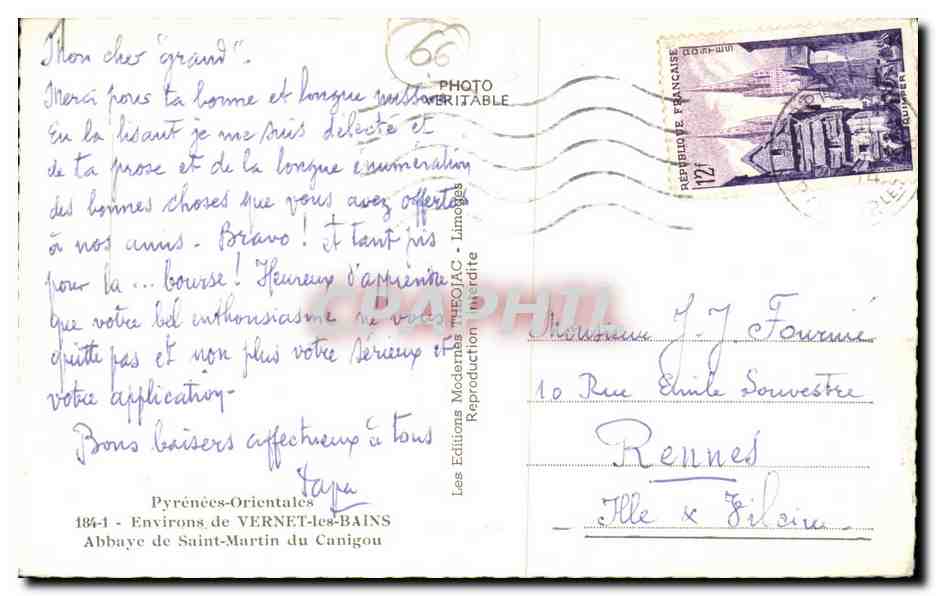 Mon cher "grand".
Merci pour ta bonne et longue missive
En la lisant je me suis délecté et
de ta prose et de la longue énumération
des bonnes choses que vous avez offertes
à nos amis - Bravo ! et tant pis
pour la ... bourse ! Heureux d'apprendre
que votre bel enthousiasme ne vous
quitte pas et non plus votre sérieux et
votre application -
Bons baisers affectueux à tous
Papa
Pyrénées-Orientales
184-1 - Environs de VERNET-les-BAINS
Abbaye de Saint-Martin du Canigou
66
PHOTO
VÉRITABLE
Les Editions Modernes THEOJAC - Limoges
Reproduction interdite
CPAPHIL
RÉPUBLIQUE FRANÇAISE
POSTES
12f
QUIMPER
Monsieur J-J Fournié
10 Rue Emile Souvestre
Rennes
Ille & Vilaine